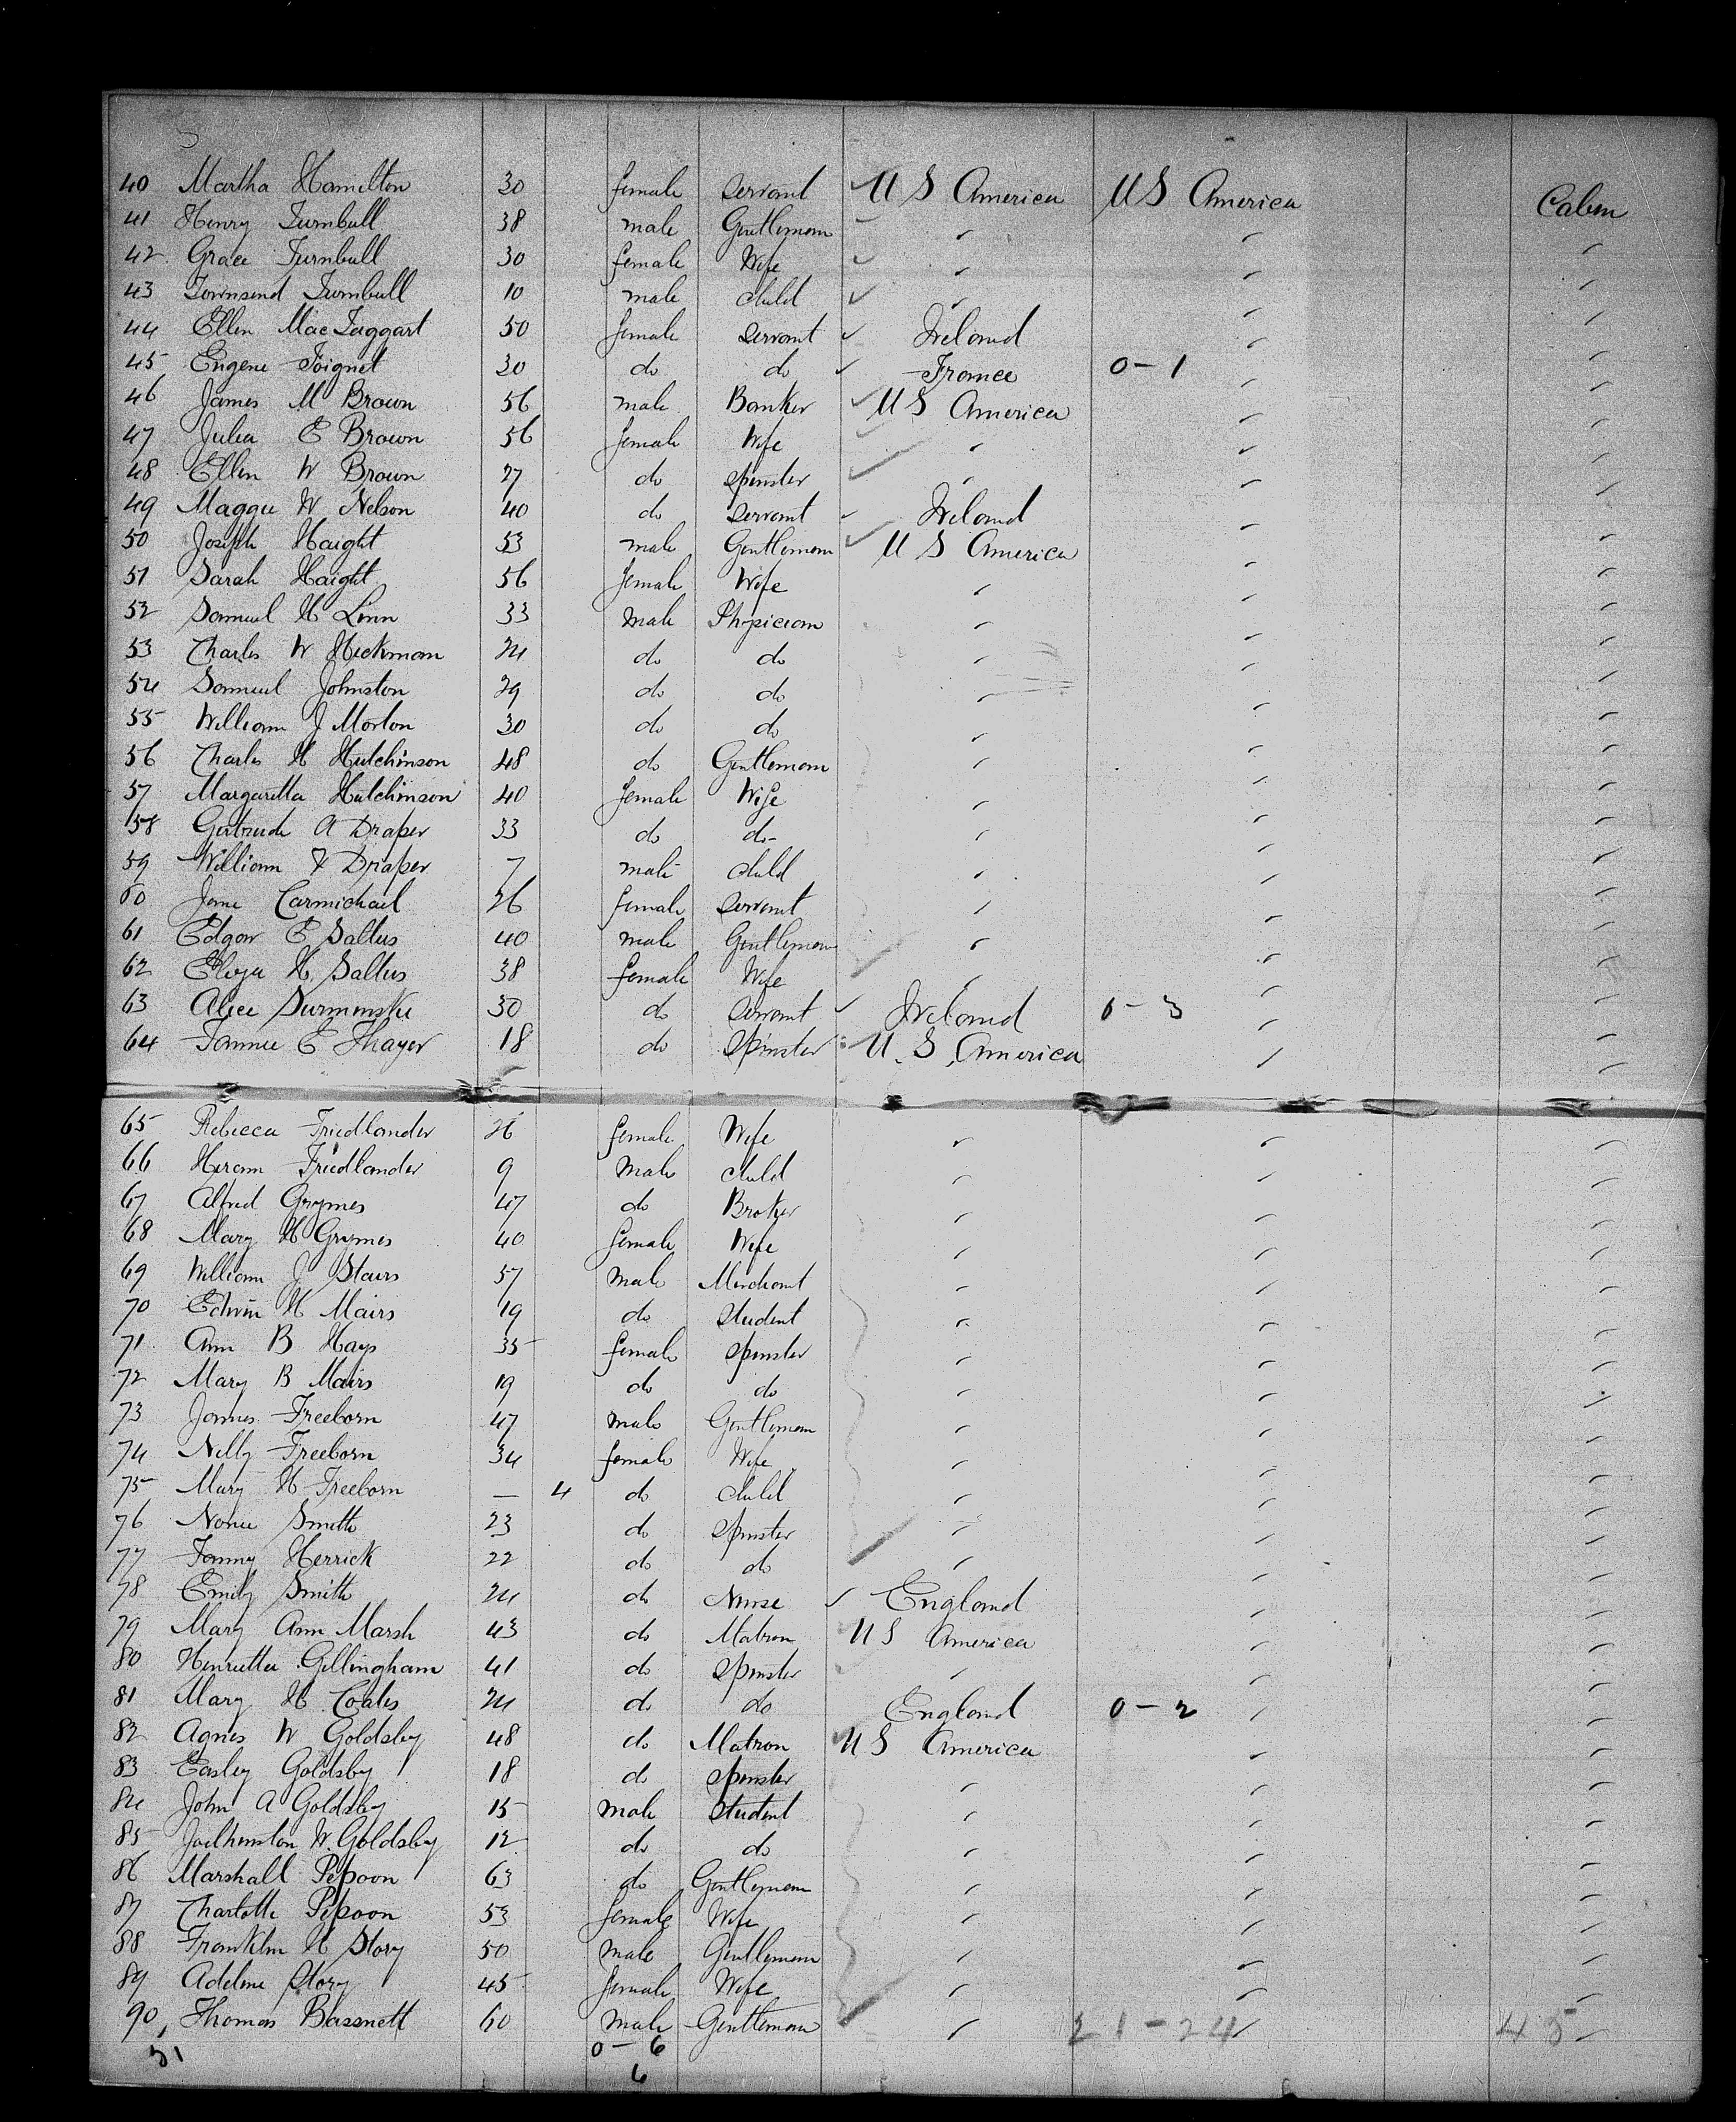 40 Martha Hamilton 30 female Servant U S America U S America Cabin
41 Henry Turnbull 38 male Gentleman " " "
42 Grace Turnbull 30 female Wife " " "
43 Townsend Turnbull 10 male child " " "
44 Ellen MacTaggart 50 female Servant Ireland " "
45 Eugene Foignet 30 do do France 0-1 " "
46 James M Brown 56 male Banker U S America " "
47 Julia E Brown 56 female Wife " " "
48 Ellen W Brown 27 do Spinster " " "
49 Maggie W Nelson 40 do Servant Ireland " "
50 Joseph Haight 53 male Gentleman U S America " "
51 Sarah Haight 56 female Wife " " "
52 Samuel H Linn 33 male Physician " " "
53 Charles W Hickman 24 do do " " "
54 Samuel Johnston 29 do do " " "
55 William J Morton 30 do do " " "
56 Charles H Hutchinson 48 do Gentleman " " "
57 Margaretta Hutchinson 40 female Wife " " "
58 Gertrude A Draper 33 do do " " "
59 William Draper 7 male child " " "
60 Jane Carmichael 26 female Servant " " "
61 Edgar E Saltus 40 male Gentleman " " "
62 Eliza H Saltus 38 female Wife " " "
63 Alice Surminski 30 do Servant Ireland 0-3 " "
64 Fannie E Thayer 18 do Spinster U. S. America " "
65 Rebecca Friedlander 26 female Wife " " "
66 Hiram Friedlander 9 male child " " "
67 Alfred Grymes 47 do Broker " " "
68 Mary H Grymes 40 female Wife " " "
69 William J Stairs 57 male Merchant " " "
70 Edwin H Mairs 19 do Student " " "
71 Ann B Hays 35 female Spinster " " "
72 Mary B Mairs 19 do do " " "
73 James Freeborn 47 male Gentleman " " "
74 Nelly Freeborn 34 female Wife " " "
75 Mary H Freeborn — 4 do child " " "
76 Nonie Smith 23 do Spinster " " "
77 Fanny Herrick 22 do do " " "
78 Emily Smith 24 do Nurse England " "
79 Mary Ann Marsh 43 do Matron U S America " "
80 Henrietta Gillingham 41 do Spinster " " "
81 Mary H Coates 24 do do England 0-2 " "
82 Agnes W Goldsby 48 do Matron U S America " "
83 Easley Goldsby 18 do Spinster " " "
84 John A Goldsby 15 male Student " " "
85 W. Goldsby 12 do do " " "
86 Marshall Pepoon 63 do Gentleman " " "
87 Charlotte Pepoon 53 female Wife " " "
88 Franklin H Story 50 male Gentleman " " "
89 Adeline Story 45 female Wife " " "
90 Thomas Bassnett 60 male Gentleman " 21-24 " 45 "
51 0-6
6